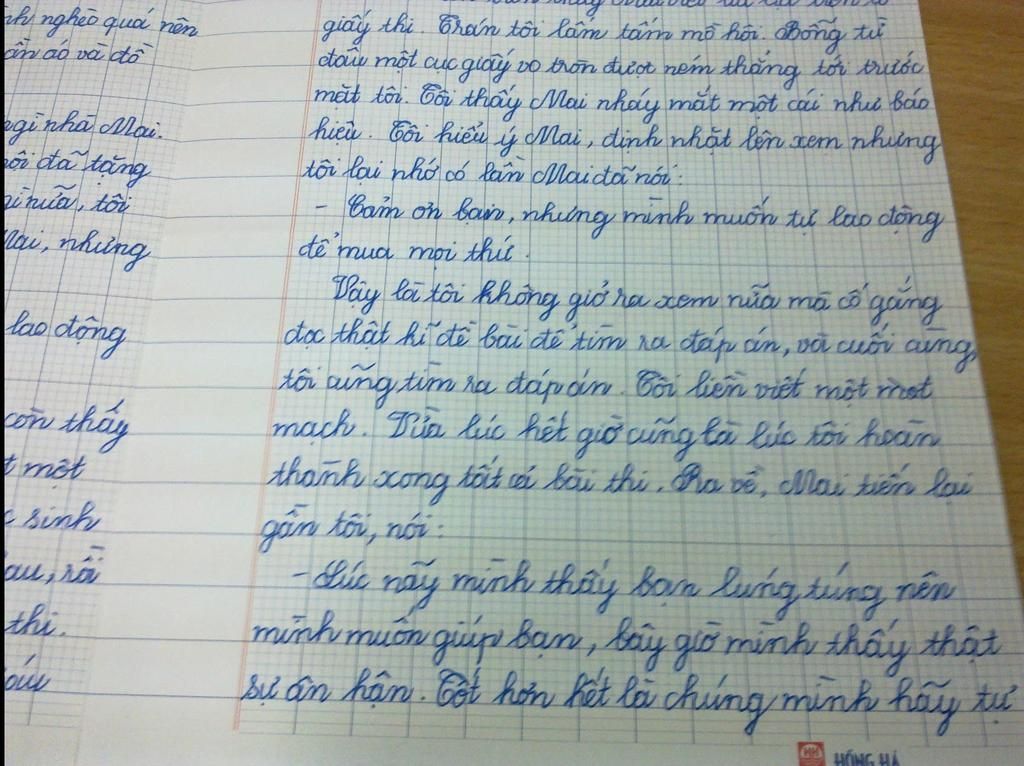 nh nghèo quá nên
ần áo và đồ
gì nhà Mai.
ôi đã tặng
gì nữa, tôi
Mai, nhưng
lao động
còn thấy
t một
c sinh
au, rồi
thi.
giấy thi. Trán tôi lấm tấm mồ hôi. Bỗng từ
đâu một cục giấy vo tròn được ném thẳng tới trước
mặt tôi. Tôi thấy Mai nháy mắt một cái như báo
hiệu. Tôi hiểu ý Mai, định nhặt lên xem nhưng
tôi lại nhớ có lần Mai đã nói:
- Cảm ơn bạn, nhưng mình muốn tự lao động
để mua mọi thứ.
Vậy là tôi không giở ra xem nữa mà cố gắng
đọc thật kĩ đề bài để tìm ra đáp án, và cuối cùng,
tôi cũng tìm ra đáp án. Tôi liền viết một mạch
mạch. Vừa lúc hết giờ cũng là lúc tôi hoàn
thành xong tất cả bài thi. Ra về, Mai tiến lại
gần tôi, nói:
- Lúc nãy mình thấy bạn lúng túng nên
mình muốn giúp bạn, bây giờ mình thấy thật
sự ân hận. Tốt hơn hết là chúng mình hãy tự
HỒNG HÀ